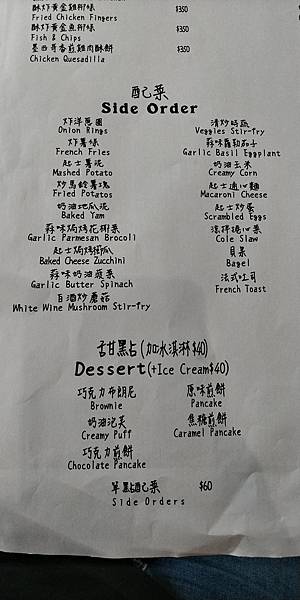 酥炸黃金雞柳條 $350
Fried Chicken Fingers
酥炸黃金魚柳條 $350
Fish & Chips
墨西哥香煎雞肉酥餅 $350
Chicken Quesadilla
配菜
Side Order
炸洋蔥圈
Onion Rings
炸薯條
French Fries
起士薯泥
Mashed Potato
炒馬鈴薯塊
Fried Potatos
奶油地瓜泥
Baked Yam
蒜味焗烤花椰菜
Garlic Parmesan Brocoli
起士焗烤櫛瓜
Baked Cheese Zucchini
蒜味奶油菠菜
Garlic Butter Spinach
白酒炒蘑菇
White Wine Mushroom Stir-fry
清炒時蔬
Veggies Stir-fry
蒜味羅勒茄子
Garlic Basil Eggplant
奶油玉米
Creamy Corn
起士通心麵
Macaroni Cheese
起士炒蛋
Scrambled Eggs
涼拌捲心菜
Cole Slaw
貝果
Bagel
法式吐司
French Toast
甜點(加冰淇淋$40)
Dessert(+Ice Cream$40)
巧克力布朗尼
Brownie
奶油泡芙
Creamy Puff
巧克力煎餅
Chocolate Pancake
原味煎餅
Pancake
焦糖煎餅
Caramel Pancake
單點配菜 $60
Side Orders